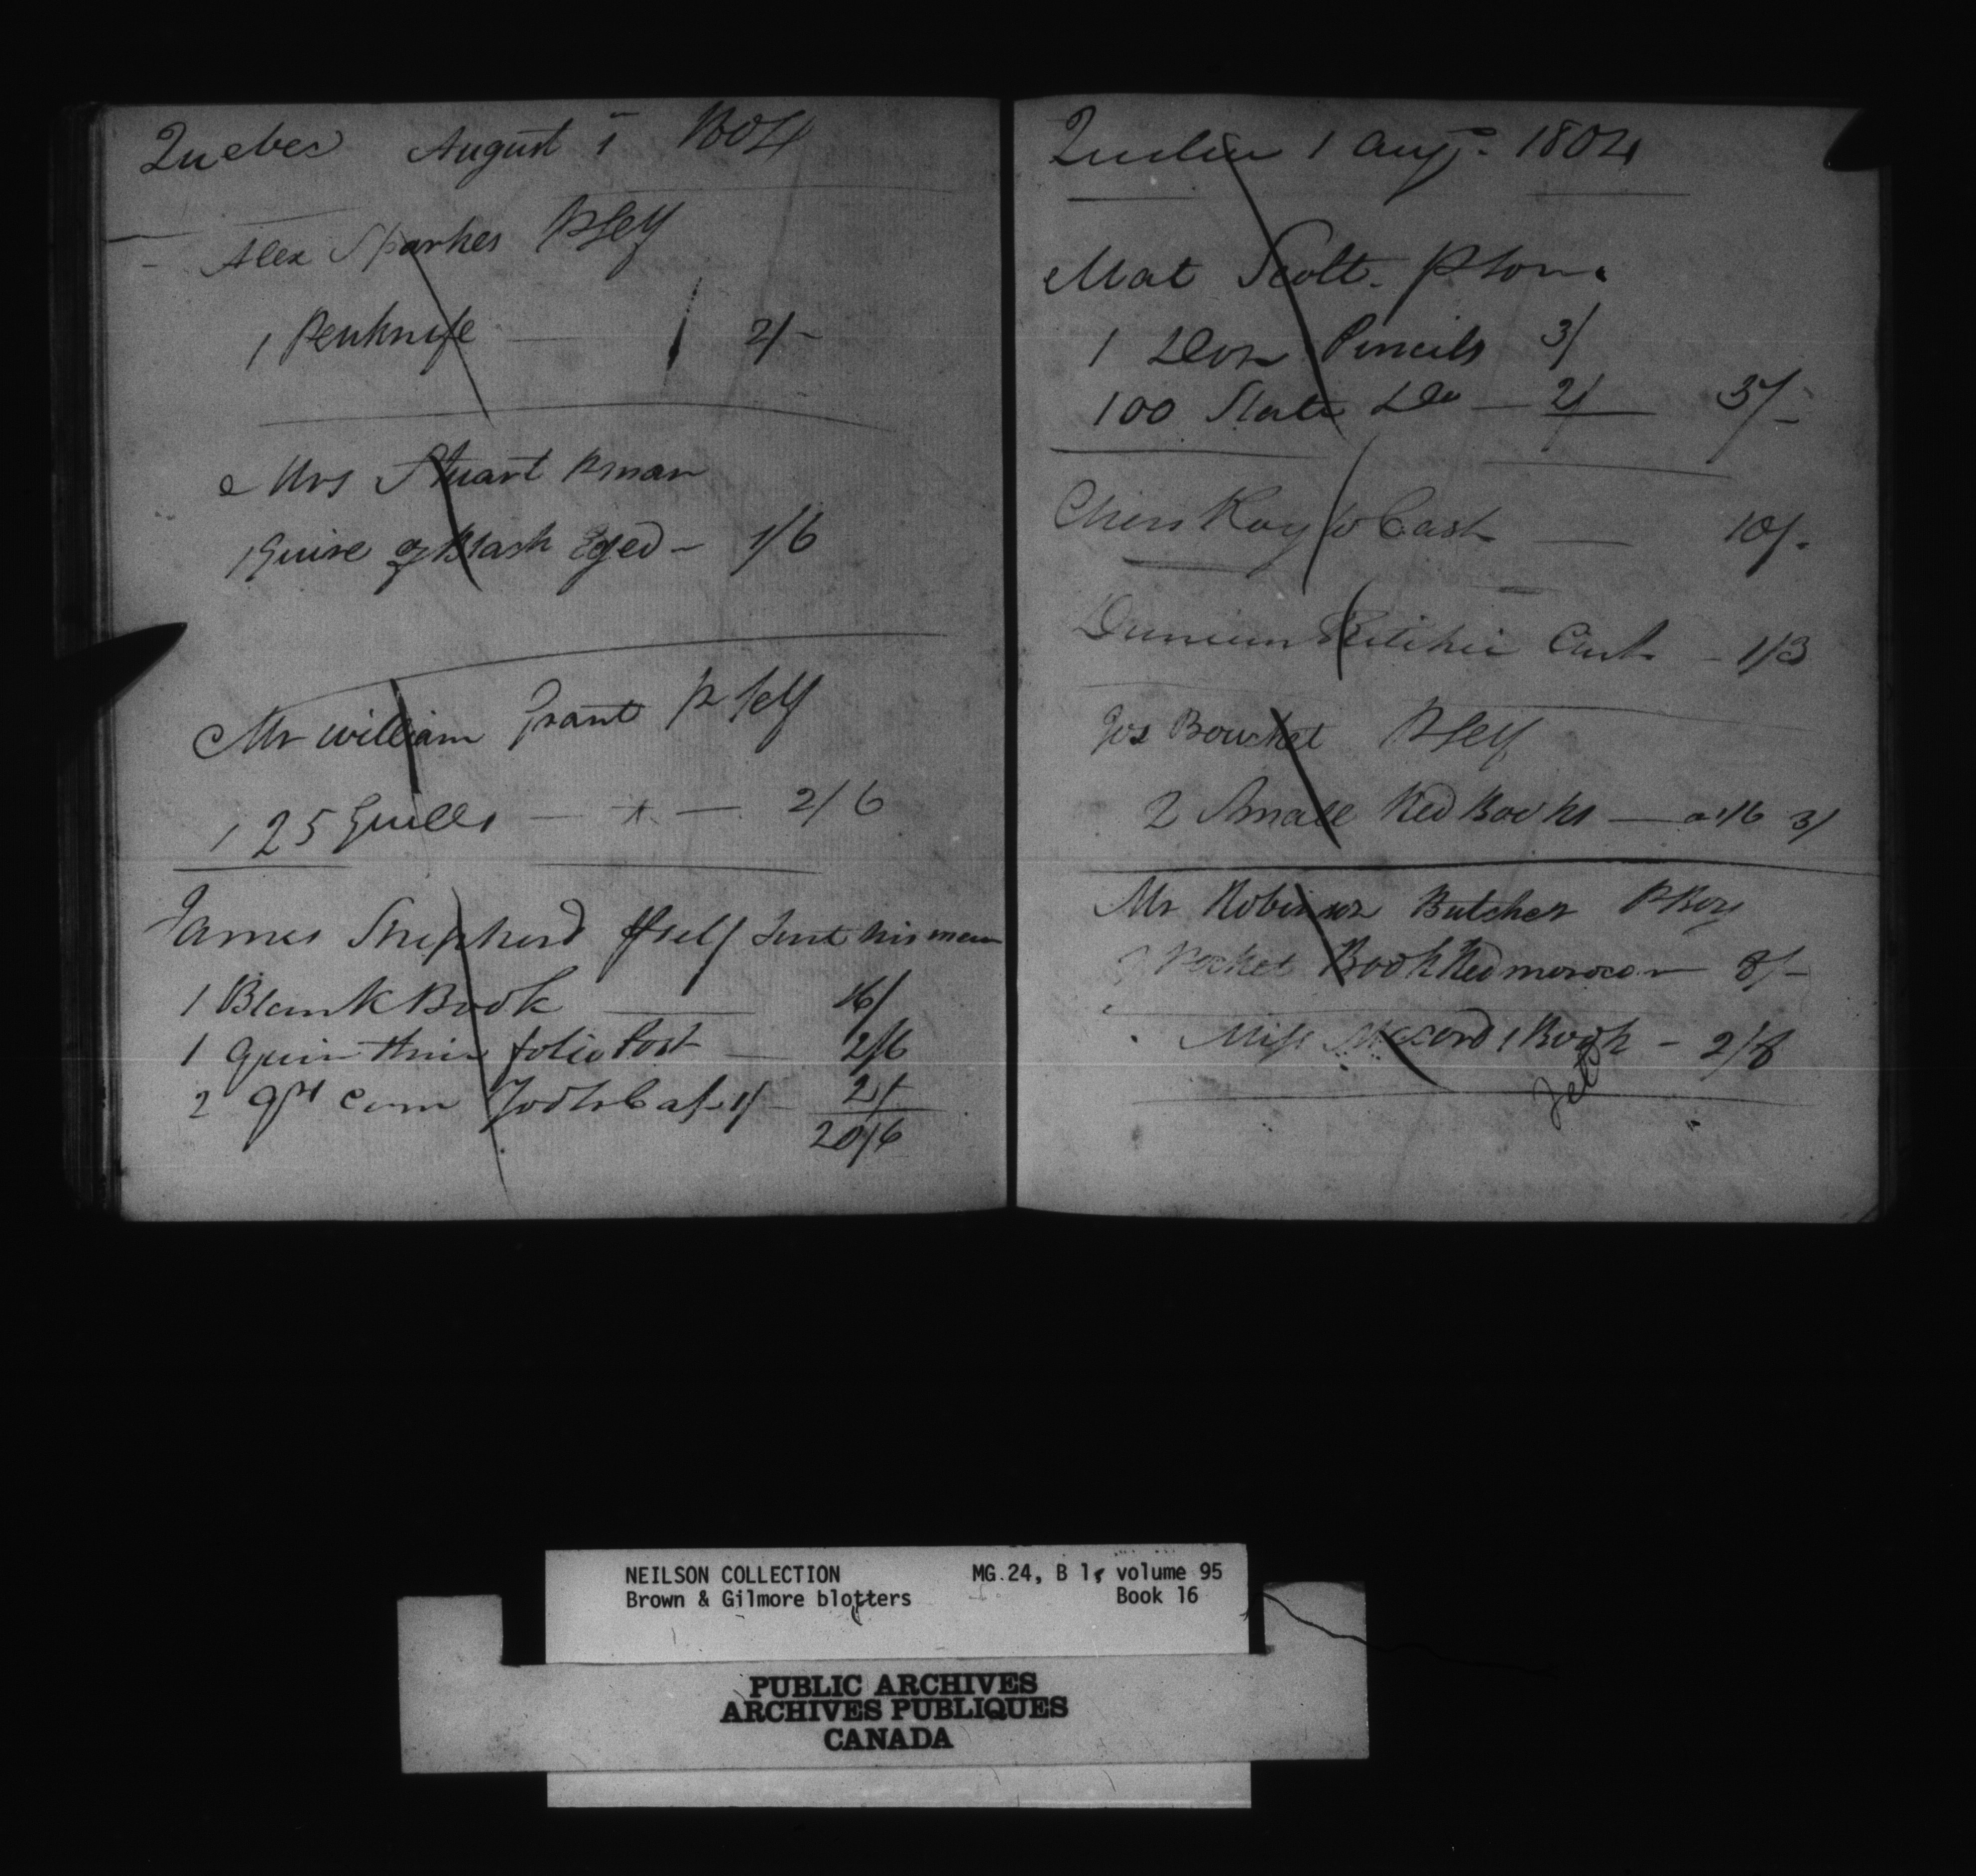 Quebec August 1 1804
Alex Sparkes P Self
1 Penknife — 2/-
Mrs Stuart P man
1 Quire of Black Eged - 1/6
Mr William Grant P Self
1 25 Quills — 2/6
James Shepherd P self Sent his man
1 Blank Book 16/
1 Quire thin folio Post — 2/6
2 Qrs com Foolscap 1/- 2/
20/6
Quebec 1 Augt. 1804
Mat Scott. P Son.
1 Doz Pencils 3/
100 Slate Do — 2/ 5/-
Kay Cash — 10/-
Duncan Ritchie Cash - 1/3
Jos Bouchet P Self
2 Small Red Books — a 1/6 3/
Mr Robinson Butcher P Boy
Pocket Book Red morocco — 8/-
Miss 1 Book - 2/8
NEILSON COLLECTION MG 24, B 1, volume 95
Brown & Gilmore blotters Book 16
PUBLIC ARCHIVES
ARCHIVES PUBLIQUES
CANADA